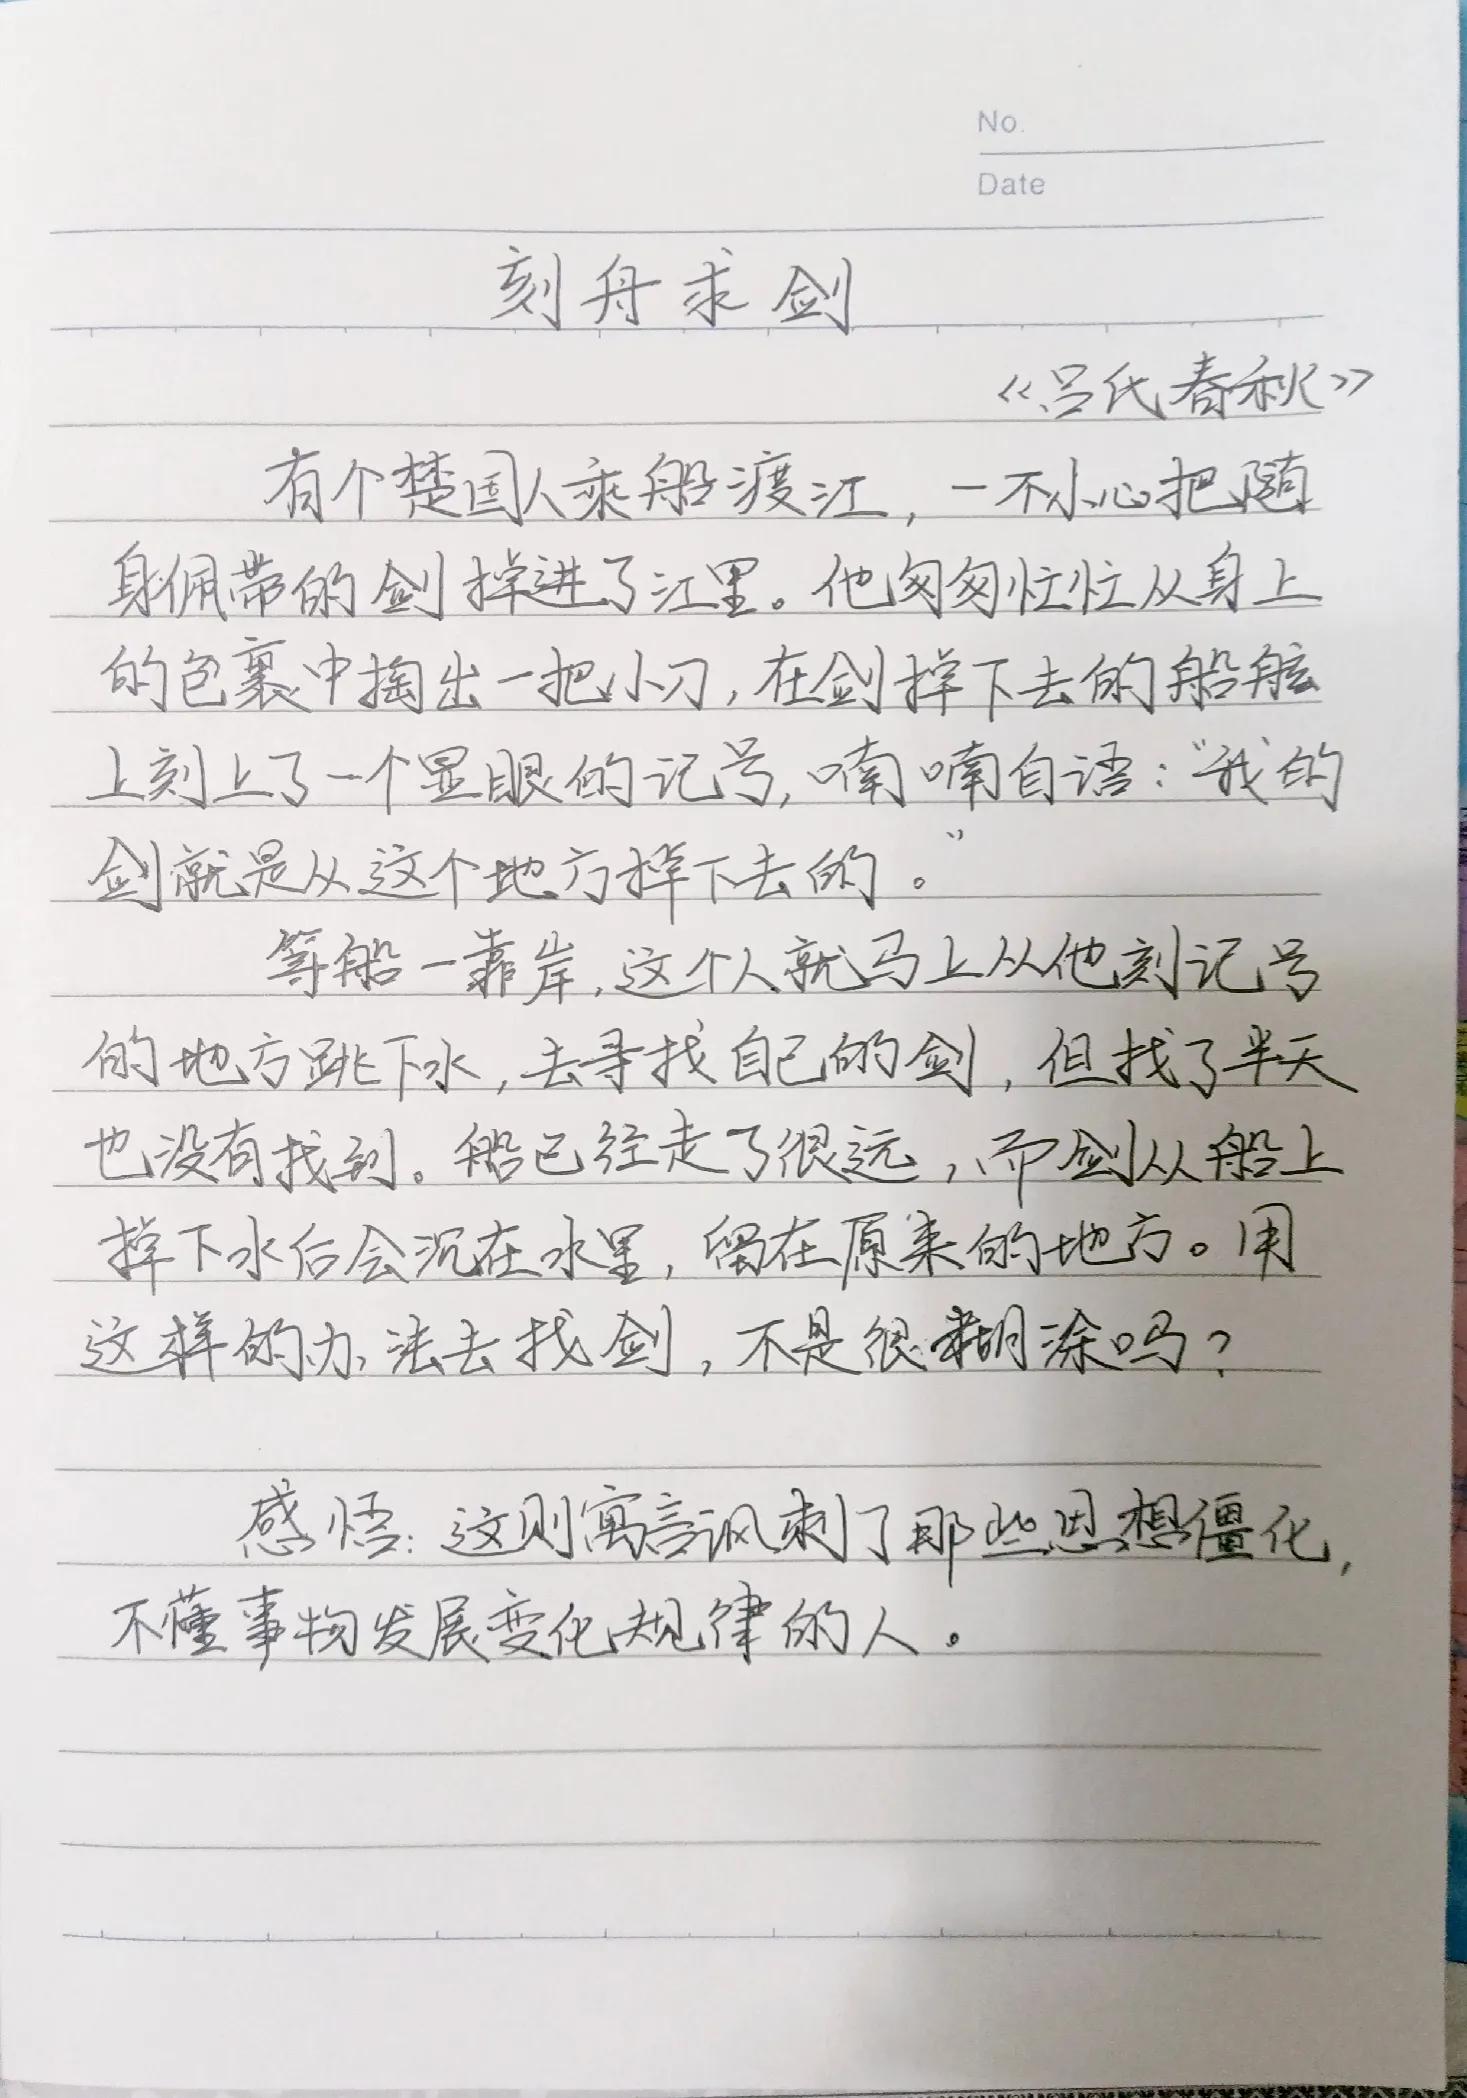 No.
Date
刻舟求剑
《吕氏春秋》
有个楚国人乘船渡江，一不小心把随
身佩带的剑掉进了江里。他匆匆忙忙从身上
的包裹中掏出一把小刀，在剑掉下去的船舷
上刻上了一个显眼的记号，喃喃自语：“我的
剑就是从这个地方掉下去的。”
等船一靠岸，这个人就马上从他刻记号
的地方跳下水，去寻找自己的剑，但找了半天
也没有找到。船已经走了很远，而剑从船上
掉下水后会沉在水里，留在原来的地方。用
这样的办法去找剑，不是很糊涂吗？
感悟：这则寓言讽刺了那些思想僵化，
不懂事物发展变化规律的人。